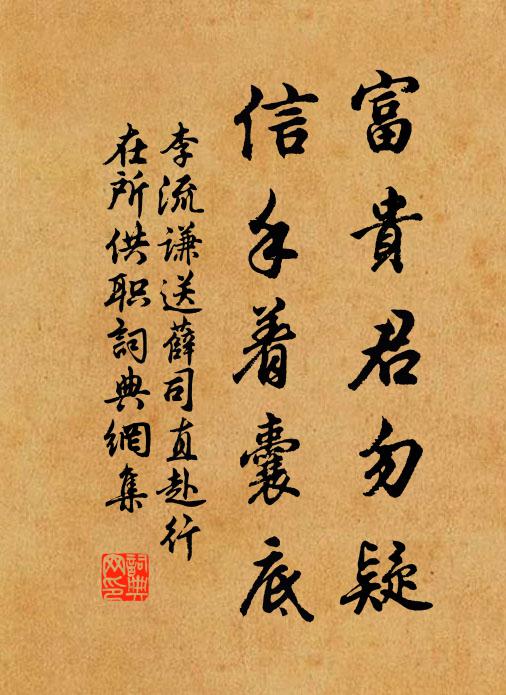 富貴君勿疑
信手着囊底
李流謙送薛司直赴行
在所供职詞典網集
詞典网印